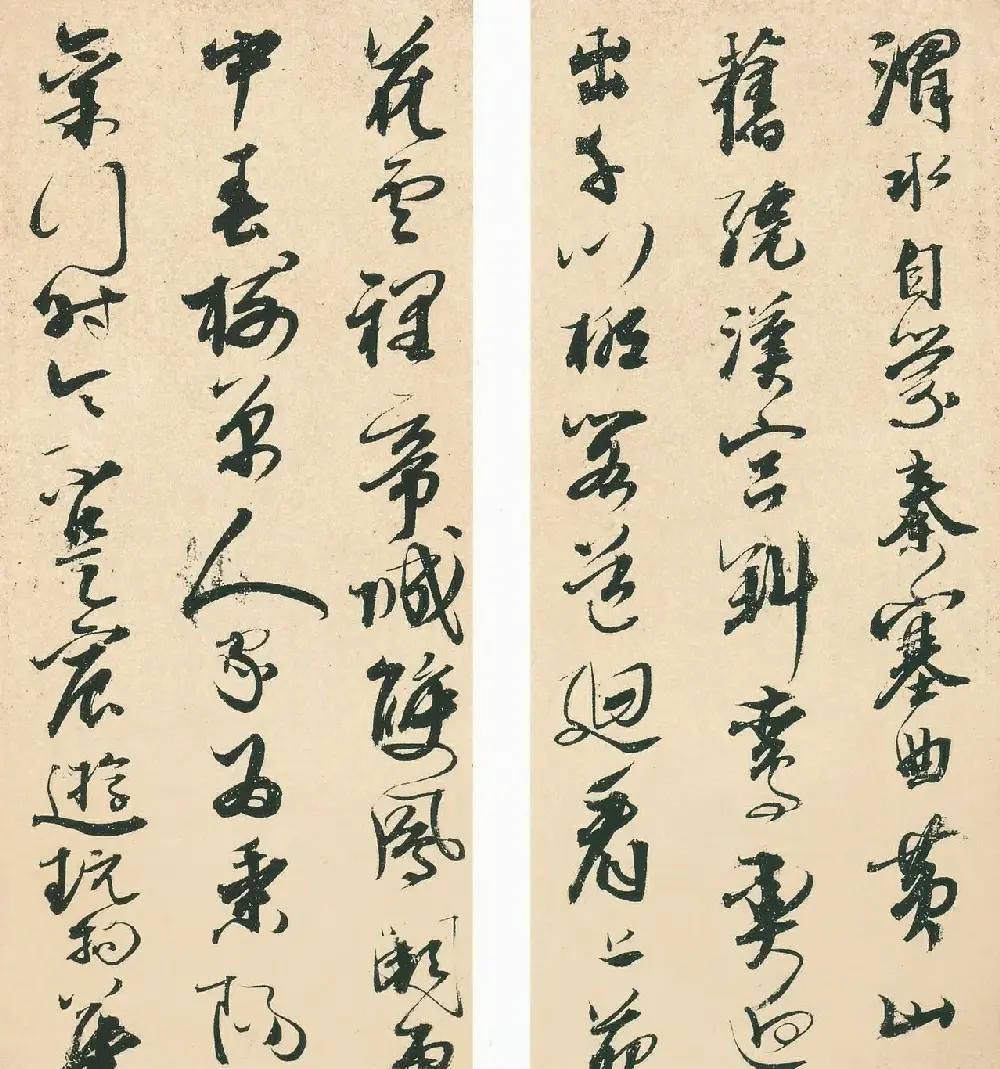 渭水自縈秦塞曲黃山
舊繞漢宮斜鑾輿迥
出千門柳閣道迴看上苑
花雲裡帝城雙鳳闕雨
中春樹萬人家為乘陽
氣行時令不是宸遊玩物華